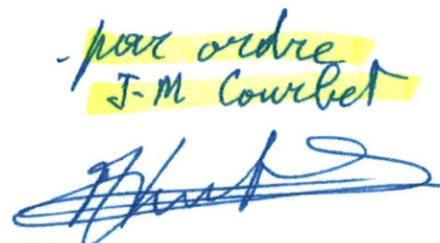 - par ordre
J-M Courbet